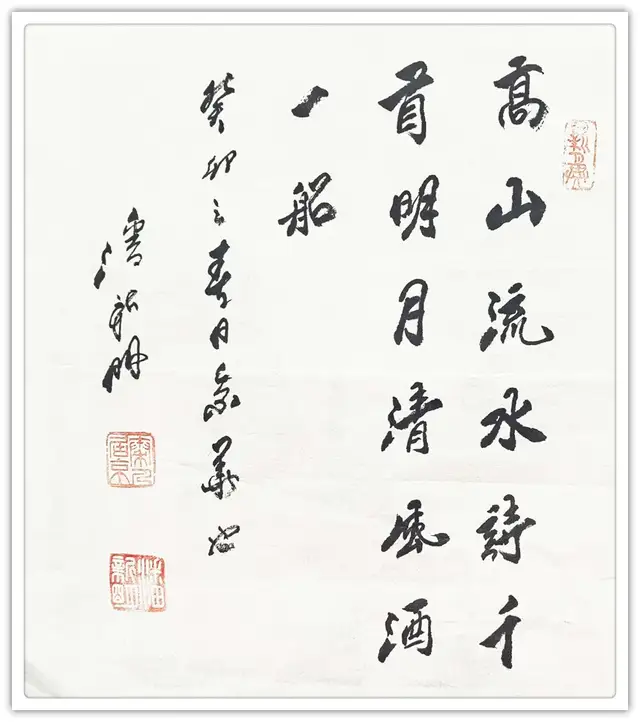 高山流水詩千
首明月清風酒
一船
癸卯之春月